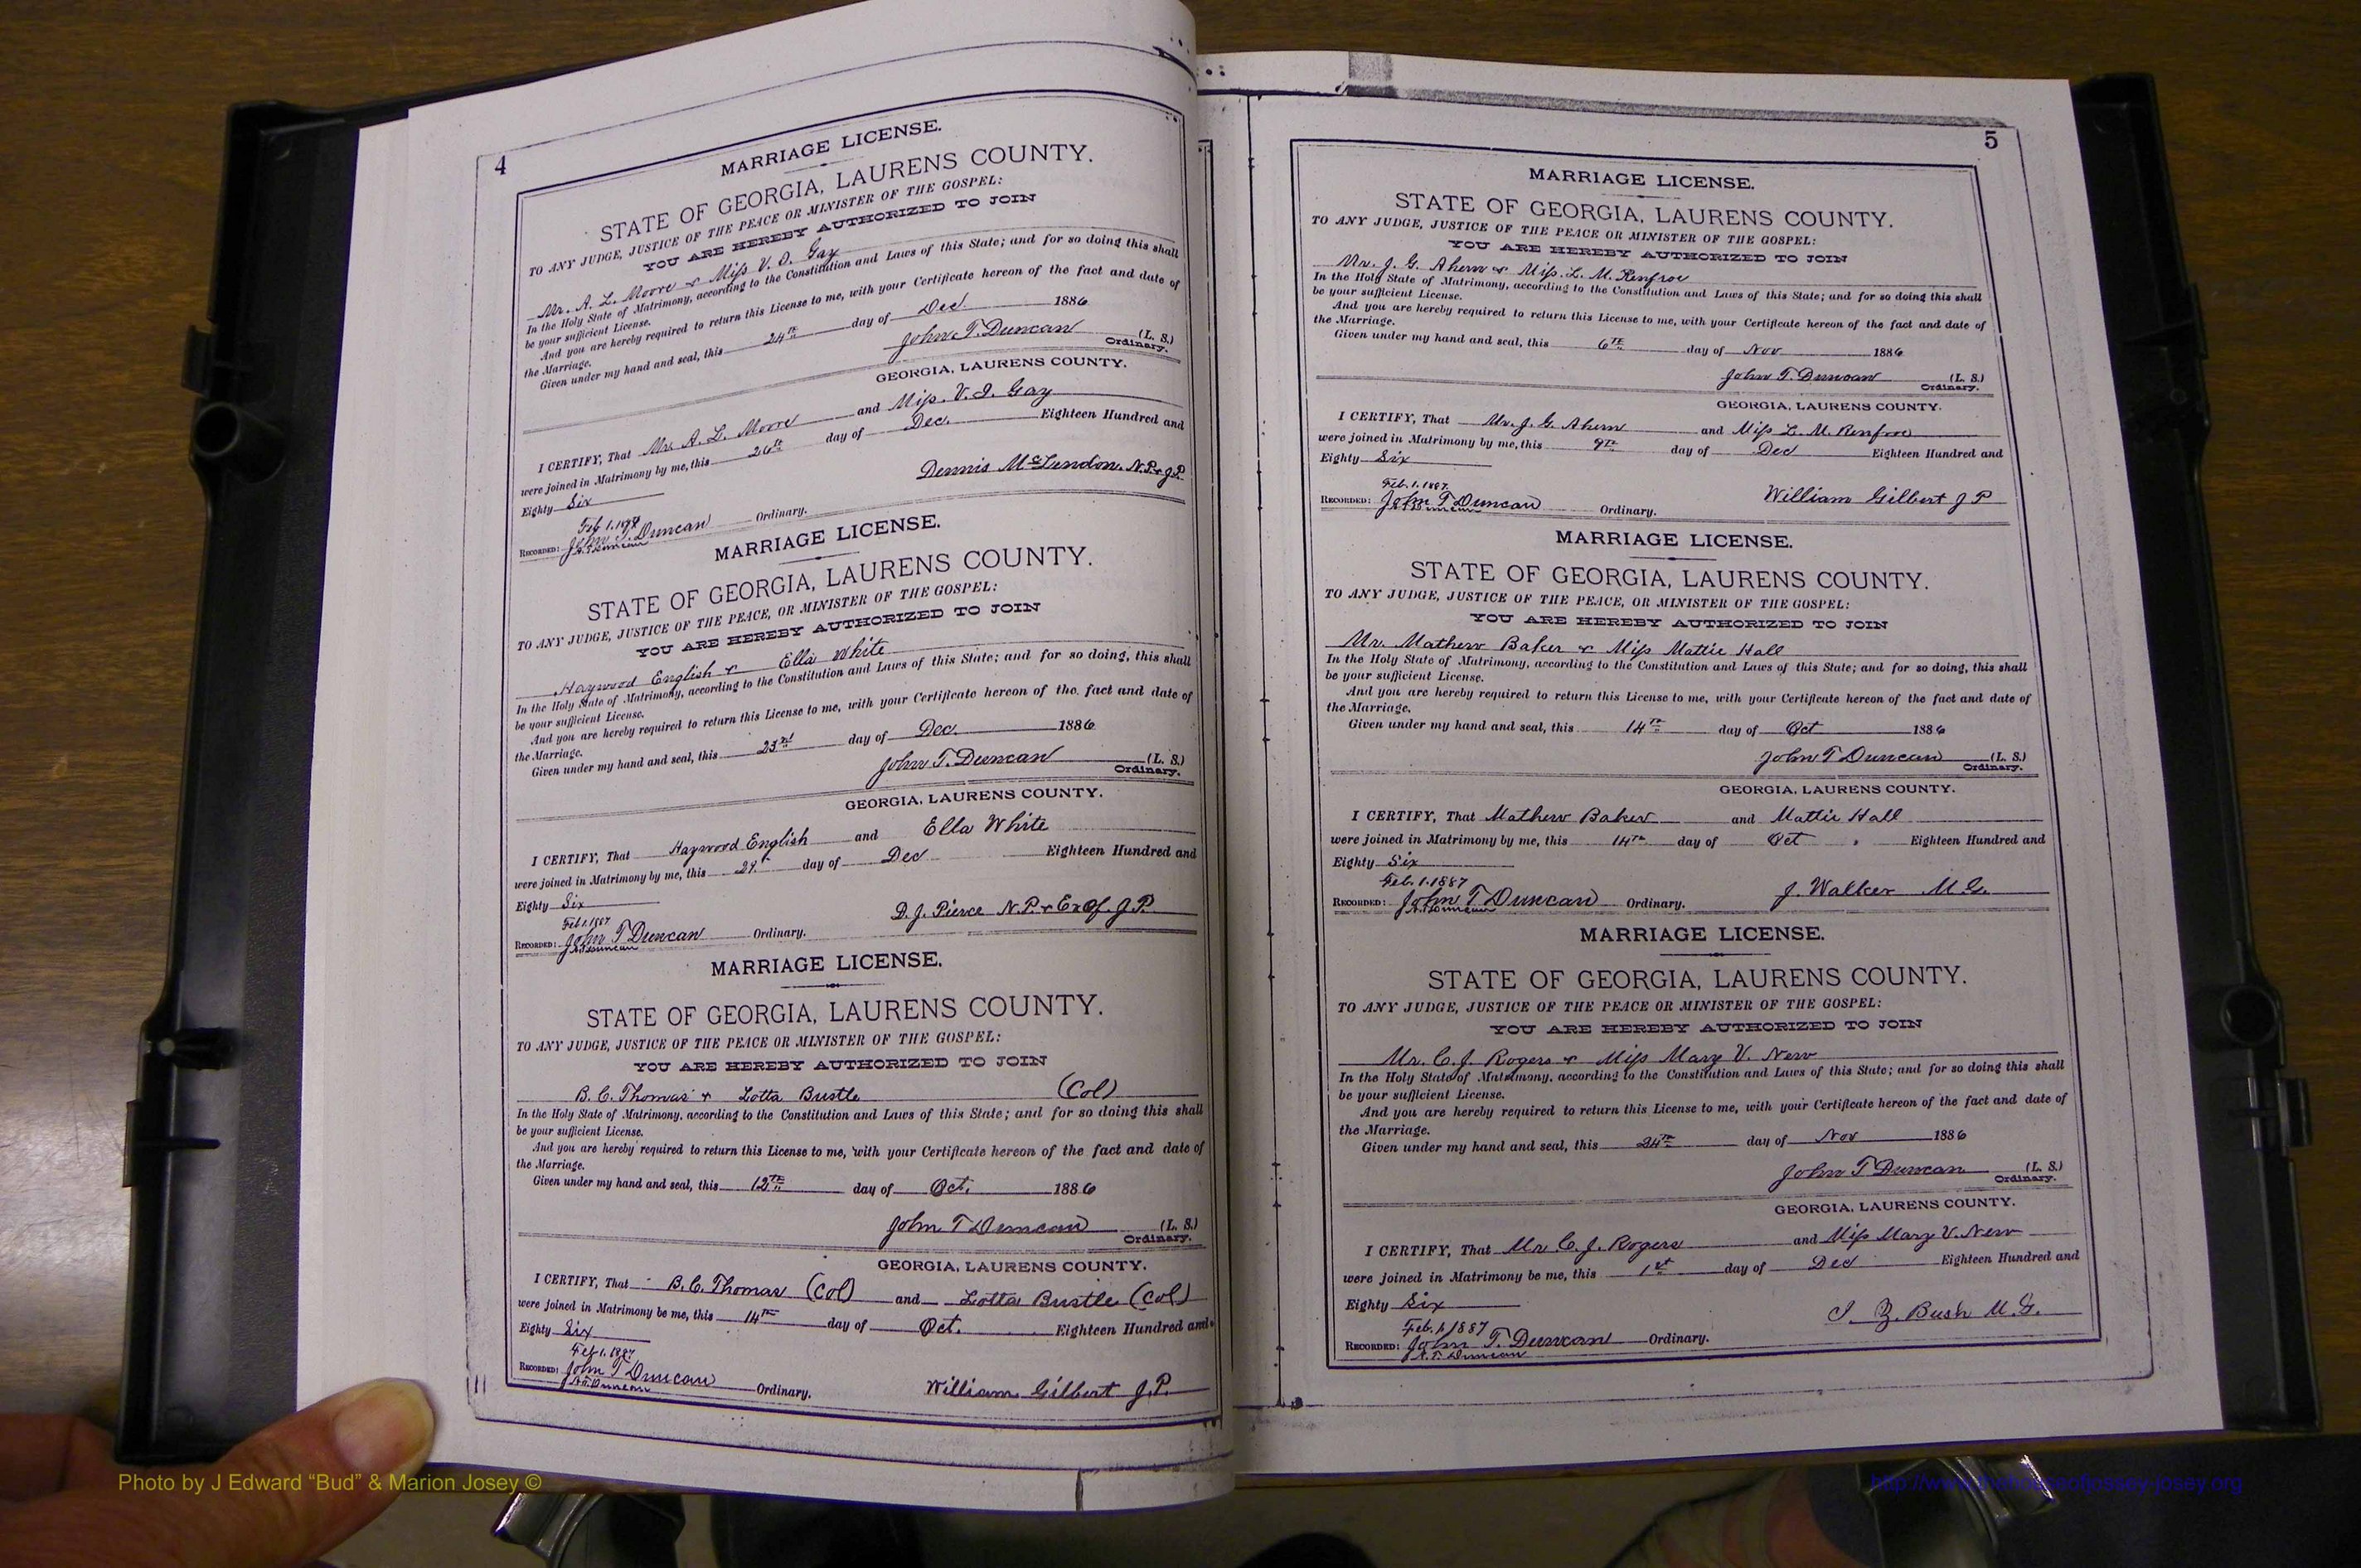 4
MARRIAGE LICENSE.
STATE OF GEORGIA, LAURENS COUNTY.
TO ANY JUDGE, JUSTICE OF THE PEACE OR MINISTER OF THE GOSPEL:
YOU ARE HEREBY AUTHORIZED TO JOIN
Mr. A. L. Moore & Miss V. O. Gay
In the Holy State of Matrimony, according to the Constitution and Laws of this State; and for so doing this shall
be your sufficient License.
And you are hereby required to return this License to me, with your Certificate hereon of the fact and date of
the Marriage.
Given under my hand and seal, this 24th day of Dec. 1886
John T. Duncan (L. S.)
Ordinary.
GEORGIA, LAURENS COUNTY.
I CERTIFY, That Mr. A. L. Moore and Miss. V. I. Gay
were joined in Matrimony by me, this 26th day of Dec. Eighteen Hundred and
Eighty Six
Dennis McLendon. N.P. & J.P.
Feb 1. 1887
RECORDED: John T. Duncan Ordinary.
MARRIAGE LICENSE.
STATE OF GEORGIA, LAURENS COUNTY.
TO ANY JUDGE, JUSTICE OF THE PEACE, OR MINISTER OF THE GOSPEL:
YOU ARE HEREBY AUTHORIZED TO JOIN
Haywood English & Ella White
In the Holy State of Matrimony, according to the Constitution and Laws of this State; and for so doing, this shall
be your sufficient License.
And you are hereby required to return this License to me, with your Certificate hereon of the fact and date of
the Marriage.
Given under my hand and seal, this 23rd day of Dec. 1886
John T. Duncan (L. S.)
Ordinary.
GEORGIA, LAURENS COUNTY.
I CERTIFY, That Haywood English and Ella White
were joined in Matrimony by me, this day of Dec Eighteen Hundred and
Eighty Six
D. J. Pierce N.P. & Ex Of J.P.
Feb 1. 1887
RECORDED: John T Duncan Ordinary.
MARRIAGE LICENSE.
STATE OF GEORGIA, LAURENS COUNTY.
TO ANY JUDGE, JUSTICE OF THE PEACE OR MINISTER OF THE GOSPEL:
YOU ARE HEREBY AUTHORIZED TO JOIN
B. C. Thomas & Lotta Bustle (Col)
In the Holy State of Matrimony, according to the Constitution and Laws of this State; and for so doing this shall
be your sufficient License.
And you are hereby required to return this License to me, with your Certificate hereon of the fact and date of
the Marriage.
Given under my hand and seal, this 12th day of Oct. 1886
John T Duncan (L. S.)
Ordinary.
GEORGIA, LAURENS COUNTY.
I CERTIFY, That B. C. Thomas (Col) and Lotta Bustle (Col)
were joined in Matrimony be me, this 14th day of Oct. Eighteen Hundred and
Eighty Six
Feb 1. 1887
RECORDED: John T Duncan Ordinary.
A. T. Duncan
William Gilbert J.P.
5
MARRIAGE LICENSE.
STATE OF GEORGIA, LAURENS COUNTY.
TO ANY JUDGE, JUSTICE OF THE PEACE OR MINISTER OF THE GOSPEL:
YOU ARE HEREBY AUTHORIZED TO JOIN
Mr. J. G. Ahern & Miss. L. M. Renfroe
In the Holy State of Matrimony, according to the Constitution and Laws of this State; and for so doing this shall
be your sufficient License.
And you are hereby required to return this License to me, with your Certificate hereon of the fact and date of
the Marriage.
Given under my hand and seal, this 6th day of Nov 1886
John T. Duncan (L. S.)
Ordinary.
GEORGIA, LAURENS COUNTY.
I CERTIFY, That Mr. J. G. Ahern and Miss L. M. Renfroe
were joined in Matrimony by me, this 9th day of Dec Eighteen Hundred and
Eighty Six
Feb. 1. 1887.
RECORDED: John T Duncan Ordinary.
William Gilbert J P
MARRIAGE LICENSE.
STATE OF GEORGIA, LAURENS COUNTY.
TO ANY JUDGE, JUSTICE OF THE PEACE, OR MINISTER OF THE GOSPEL:
YOU ARE HEREBY AUTHORIZED TO JOIN
Mr. Mathew Baker & Miss Mattie Hall
In the Holy State of Matrimony, according to the Constitution and Laws of this State; and for so doing, this shall
be your sufficient License.
And you are hereby required to return this License to me, with your Certificate hereon of the fact and date of
the Marriage.
Given under my hand and seal, this 14th day of Oct 1886
John T Duncan (L. S.)
Ordinary.
GEORGIA, LAURENS COUNTY.
I CERTIFY, That Mathew Baker and Mattie Hall
were joined in Matrimony by me, this 14th day of Oct Eighteen Hundred and
Eighty Six
Feb. 1. 1887
RECORDED: John T Duncan Ordinary.
J. Walker M. G.
MARRIAGE LICENSE.
STATE OF GEORGIA, LAURENS COUNTY.
TO ANY JUDGE, JUSTICE OF THE PEACE OR MINISTER OF THE GOSPEL:
YOU ARE HEREBY AUTHORIZED TO JOIN
Mr. C. J. Rogers & Miss Mary V. New
In the Holy State of Matrimony, according to the Constitution and Laws of this State; and for so doing this shall
be your sufficient License.
And you are hereby required to return this License to me, with your Certificate hereon of the fact and date of
the Marriage.
Given under my hand and seal, this 24th day of Nov 1886
John T Duncan (L. S.)
Ordinary.
GEORGIA, LAURENS COUNTY.
I CERTIFY, That Mr C. J. Rogers and Miss Mary V. New
were joined in Matrimony be me, this 1st day of Dec Eighteen Hundred and
Eighty Six
J. Z. Bush M. G.
Feb. 1, 1887
RECORDED: John T. Duncan Ordinary.
A. T. Duncan
Photo by J Edward “Bud” & Marion Josey ©